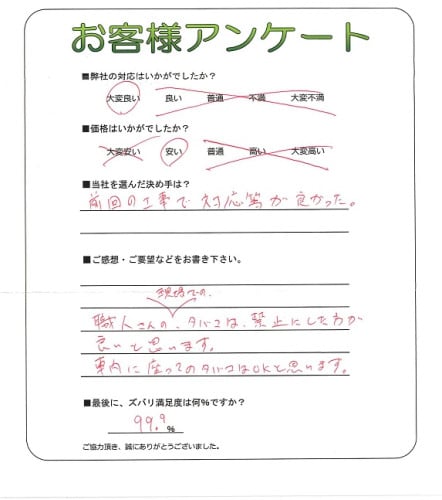 お客様アンケート
■弊社の対応はいかがでしたか？
大変良い 良い 普通 不満 大変不満
■価格はいかがでしたか？
大変安い 安い 普通 高い 大変高い
■当社を選んだ決め手は？
前回の工事で対応等が良かった。
■ご感想・ご要望などをお書き下さい。
現場での、
職人さんの、タバコは、禁止にした方が
良いと思います。
車内に座ってのタバコはOKと思います。
■最後に、ズバリ満足度は何%ですか？
99.9%
ご協力頂き、誠にありがとうございました。